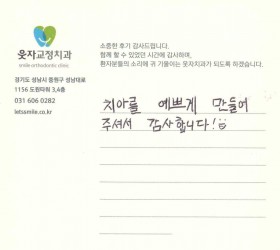 웃자교정치과
smile orthodontic clinic
경기도 성남시 중원구 성남대로
1156 도원타워 3,4층
031 606 0282
letssmile.co.kr
소중한 후기 감사드립니다.
함께 할 수 있었던 시간에 감사하며,
환자분들의 소리에 귀 기울이는 웃자치과가 되도록 하겠습니다.
치아를 예쁘게 만들어
주셔서 감사합니다!